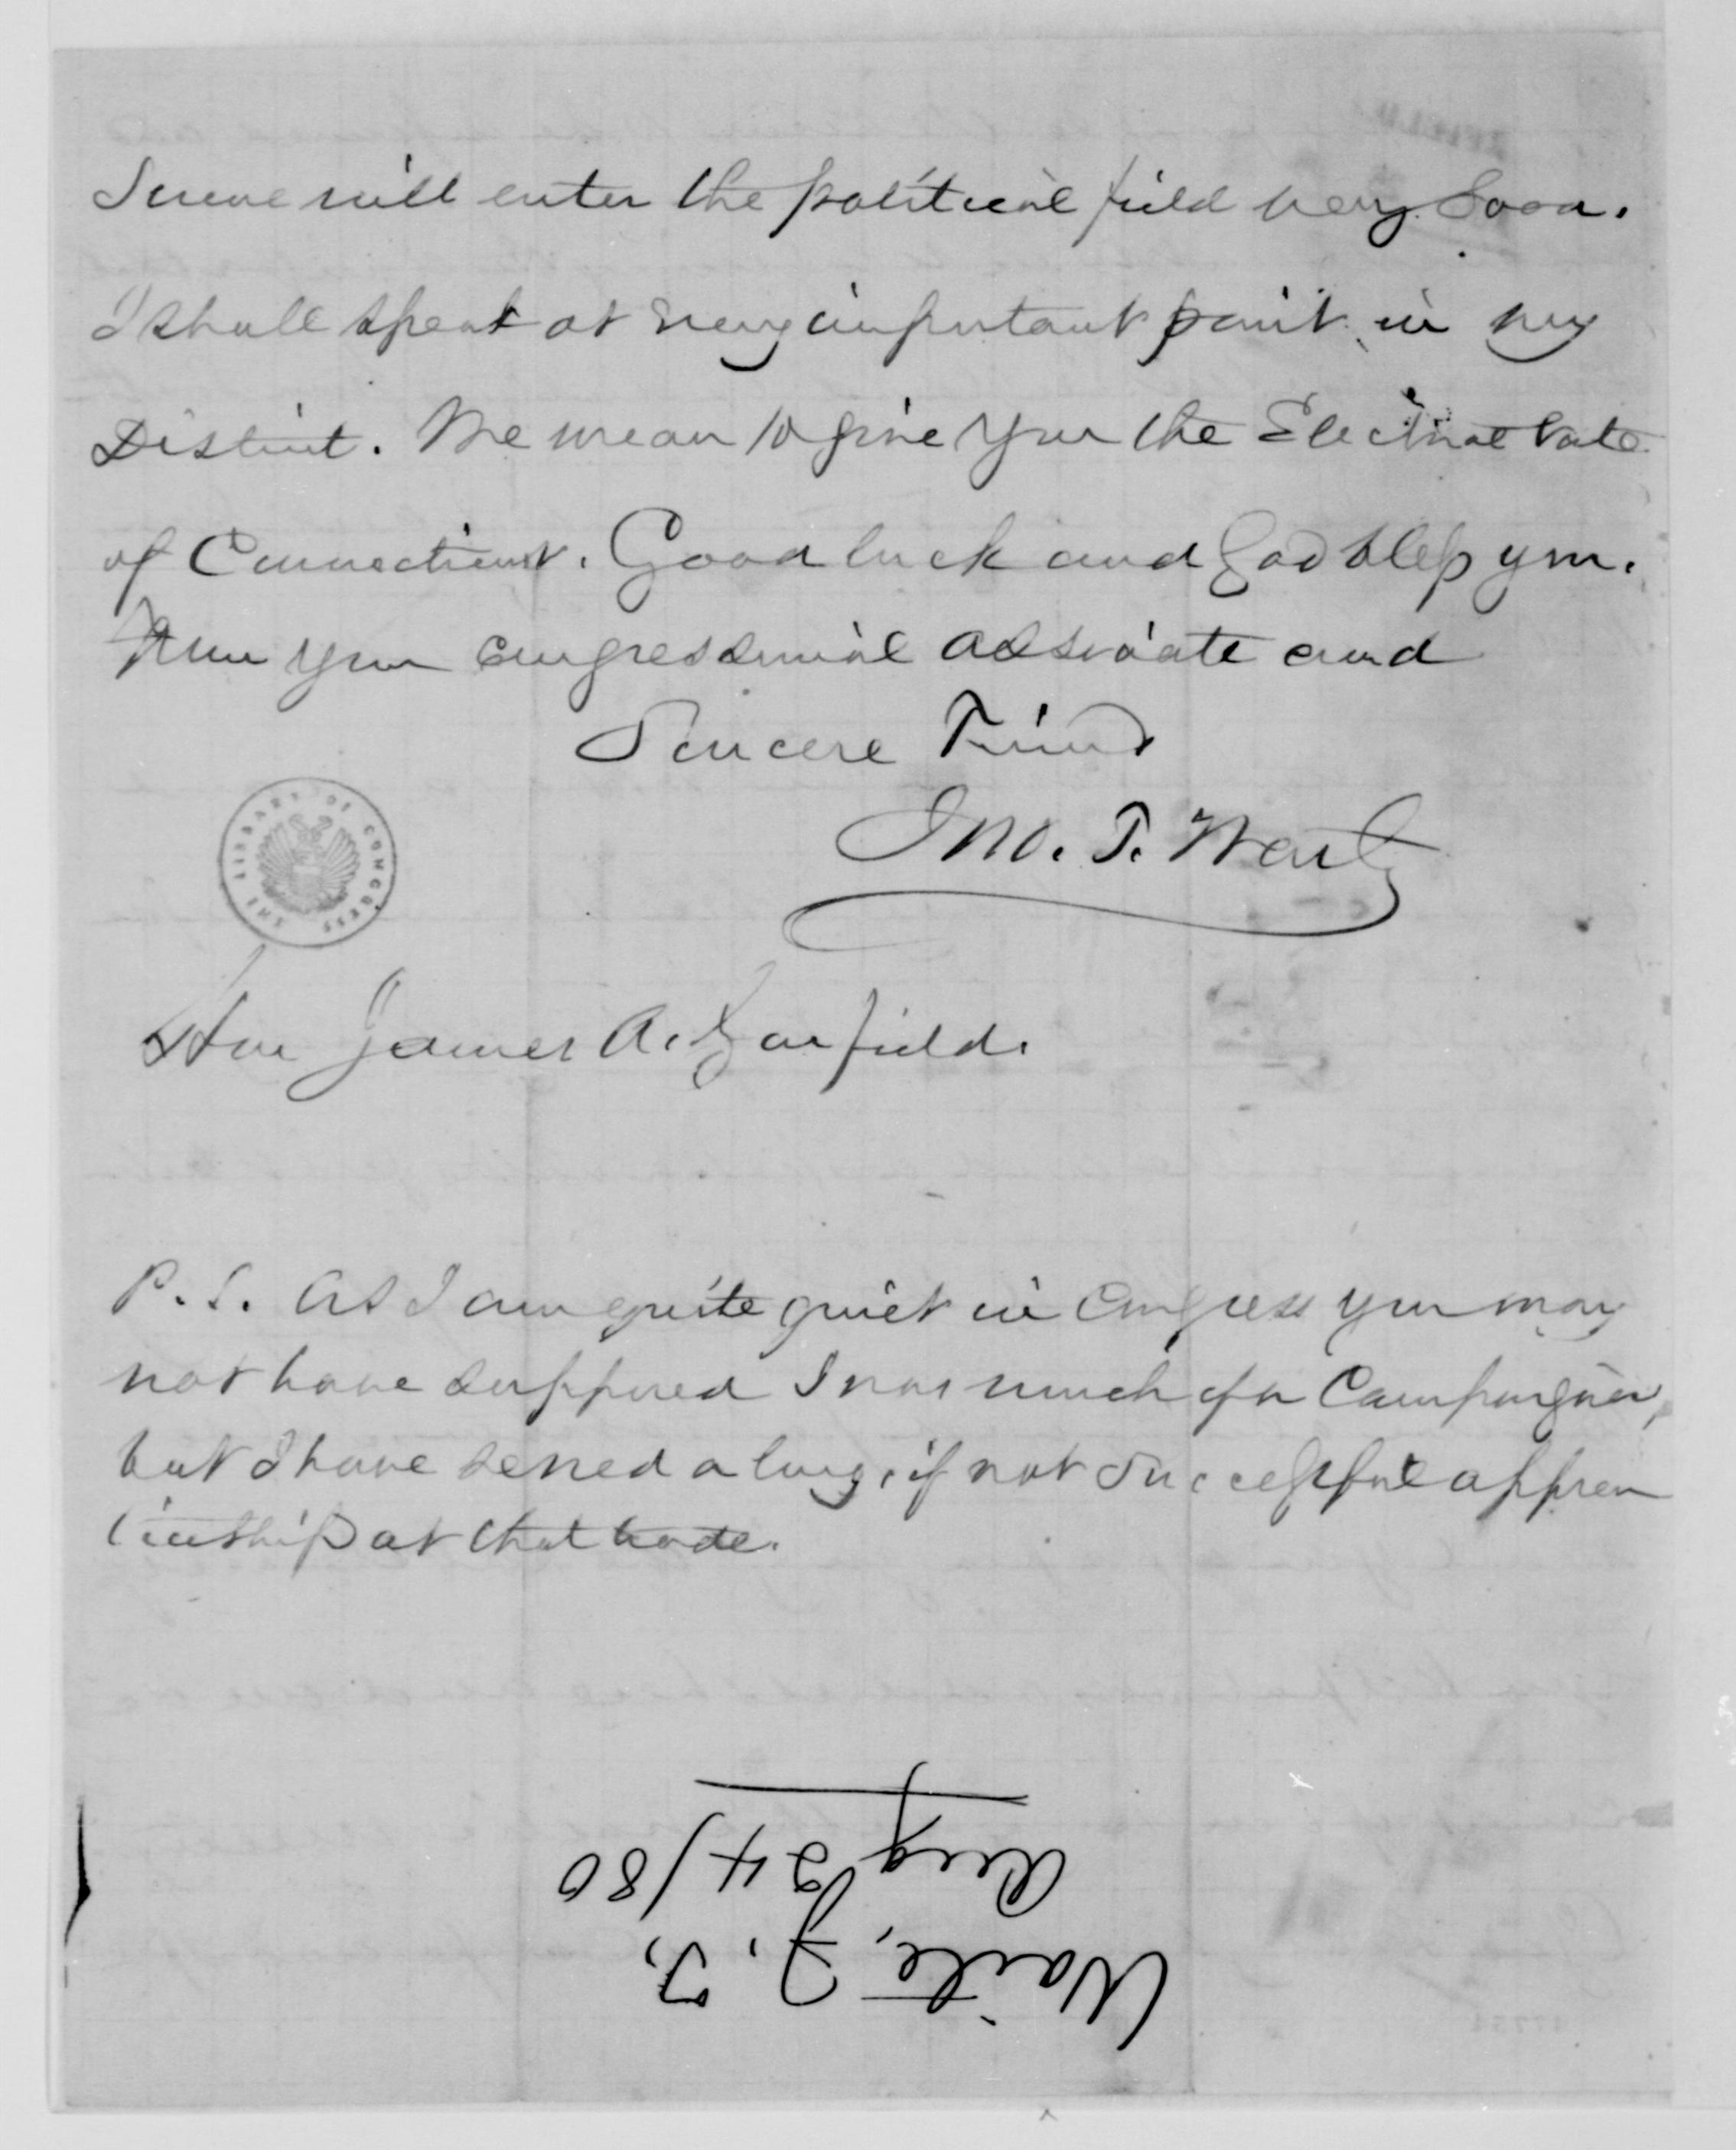 I will enter the political field very soon.
I shall speak at every important point in my
District. We mean to give you the Electoral vote
of Connecticut. Good luck and God bless you.
From your congressional associate and
Sincere Friend
Jno. T. Wait
THE LIBRARY OF CONGRESS
Hon James A. Garfield.
P.S. As I am quite quiet in Congress you may
not have supposed I was much of a Campaigner,
but I have served a long, if not successful appren
ticeship at that trade.
Waite, J. T.
Aug 24/80